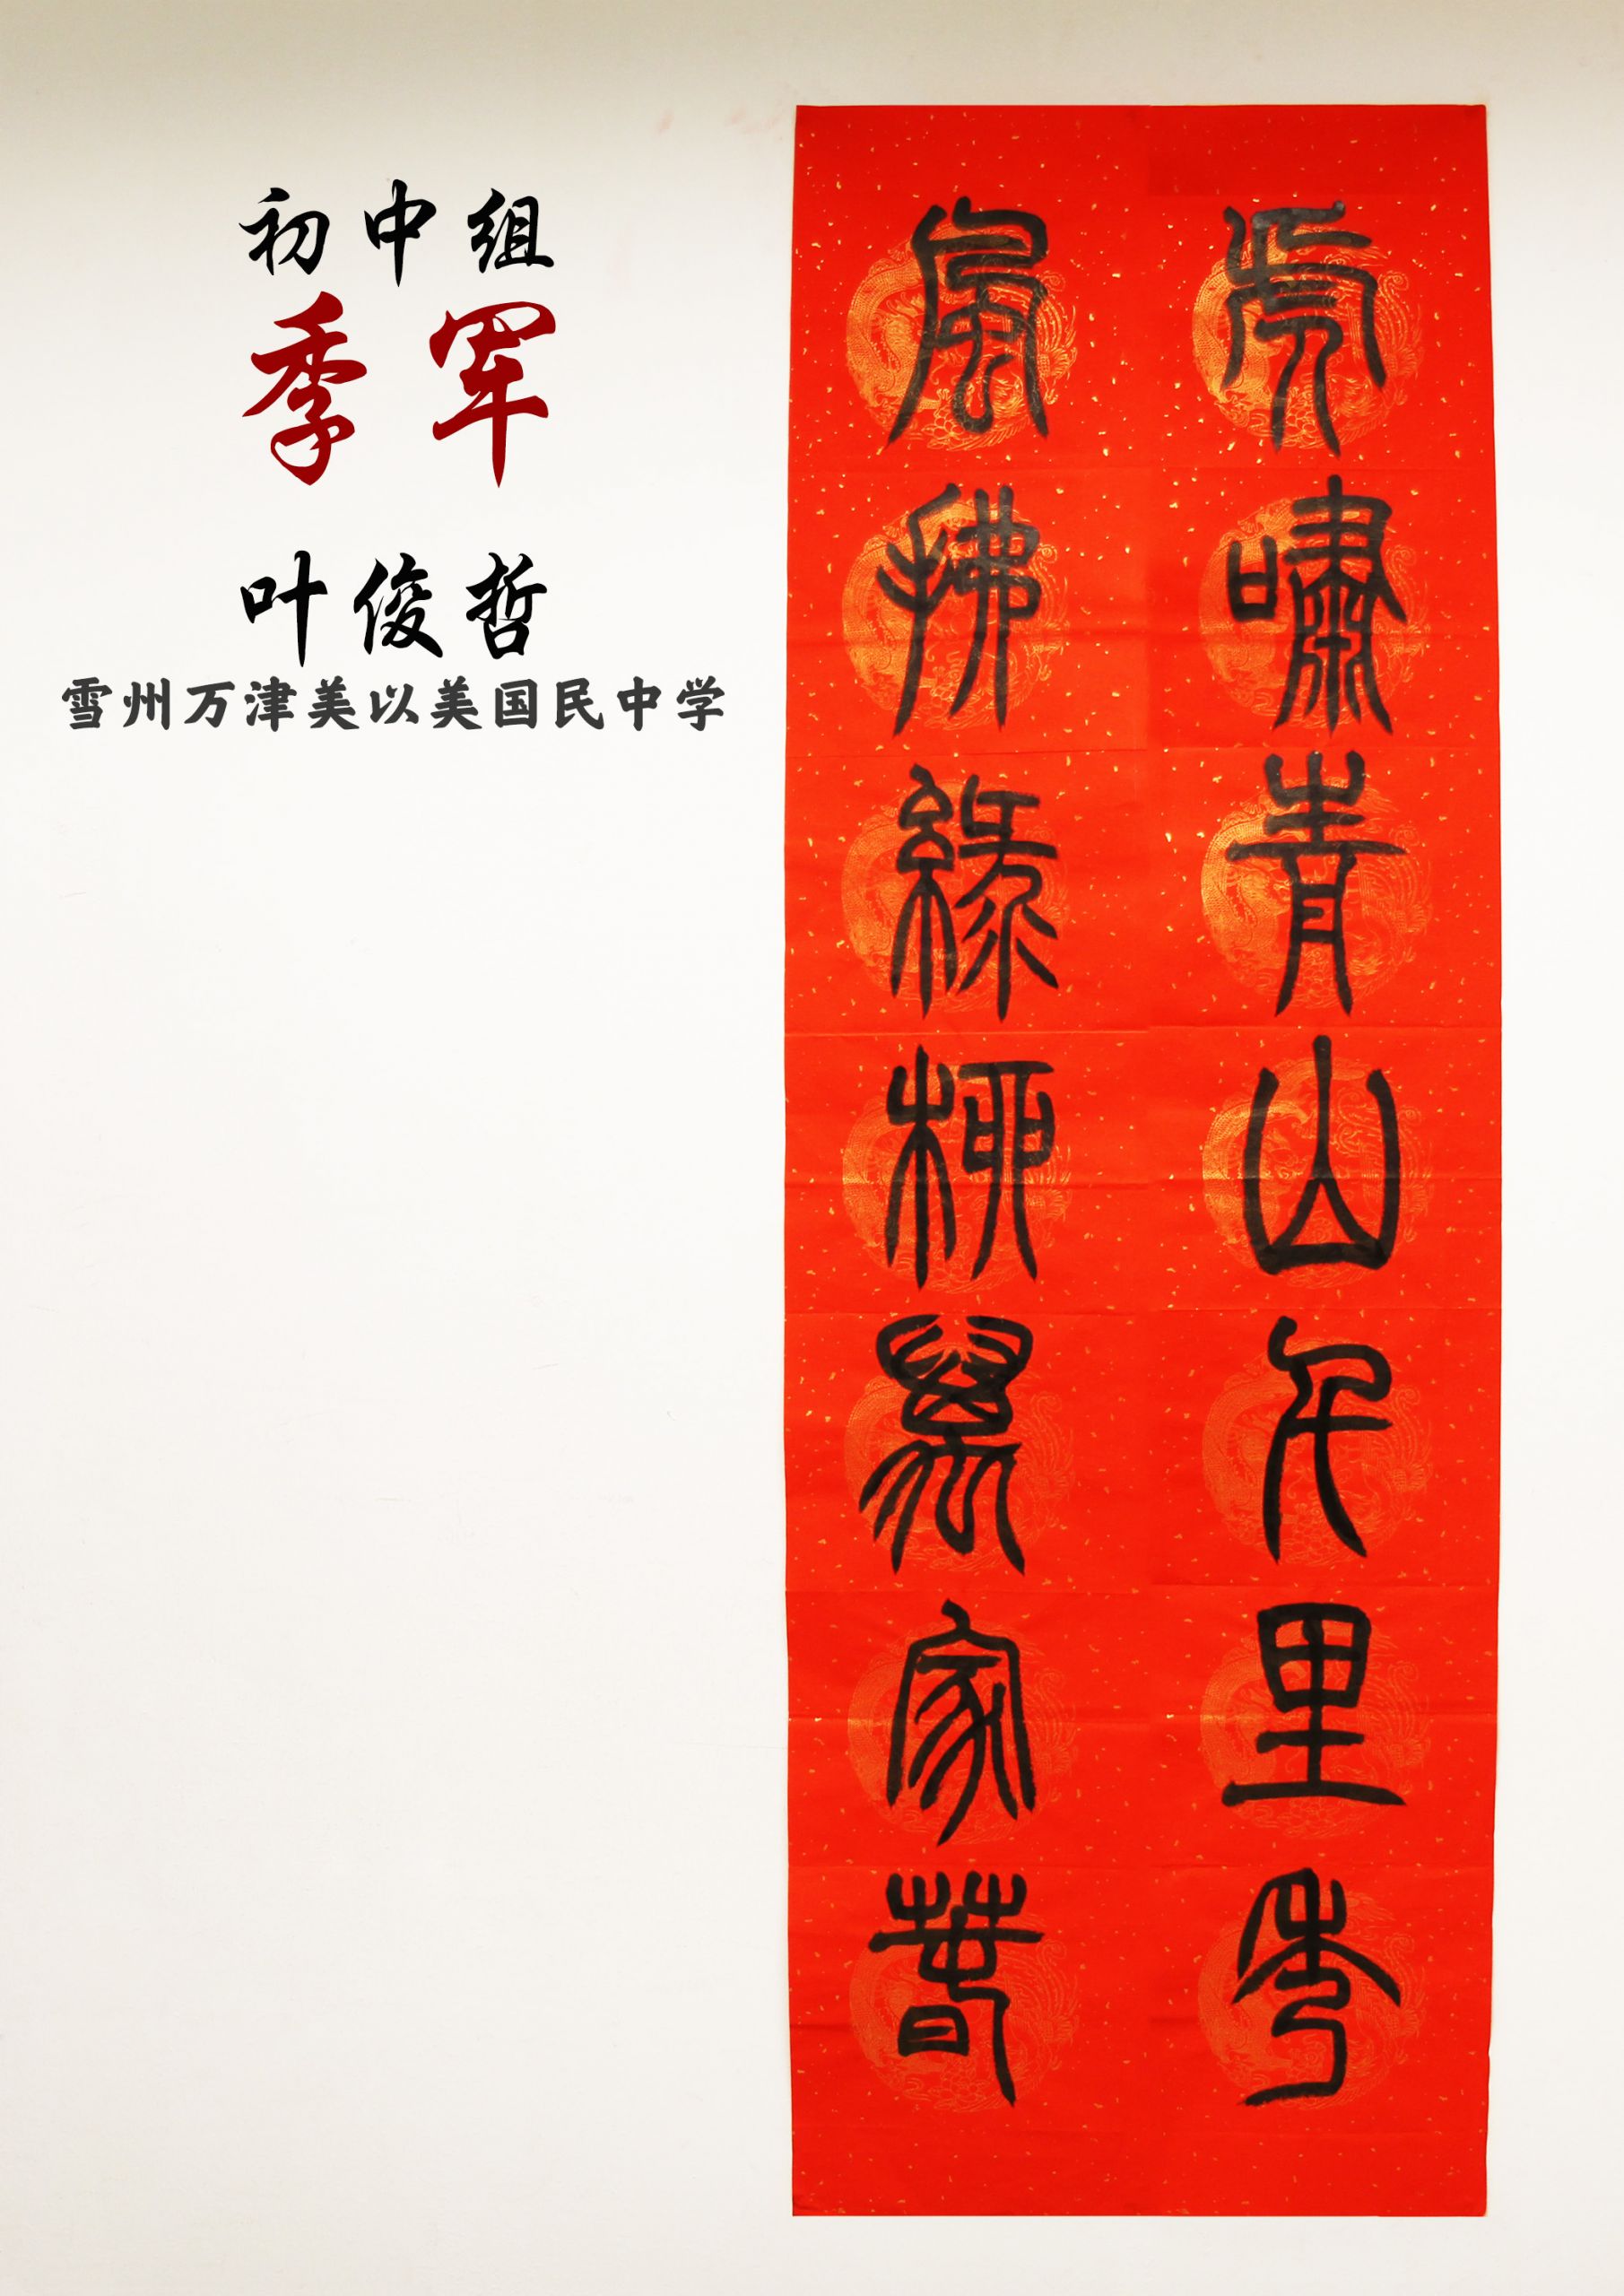 初中组
季军
叶俊哲
雪州万津美以美国民中学
虎嘯青山千里秀
風拂綠柳萬家春